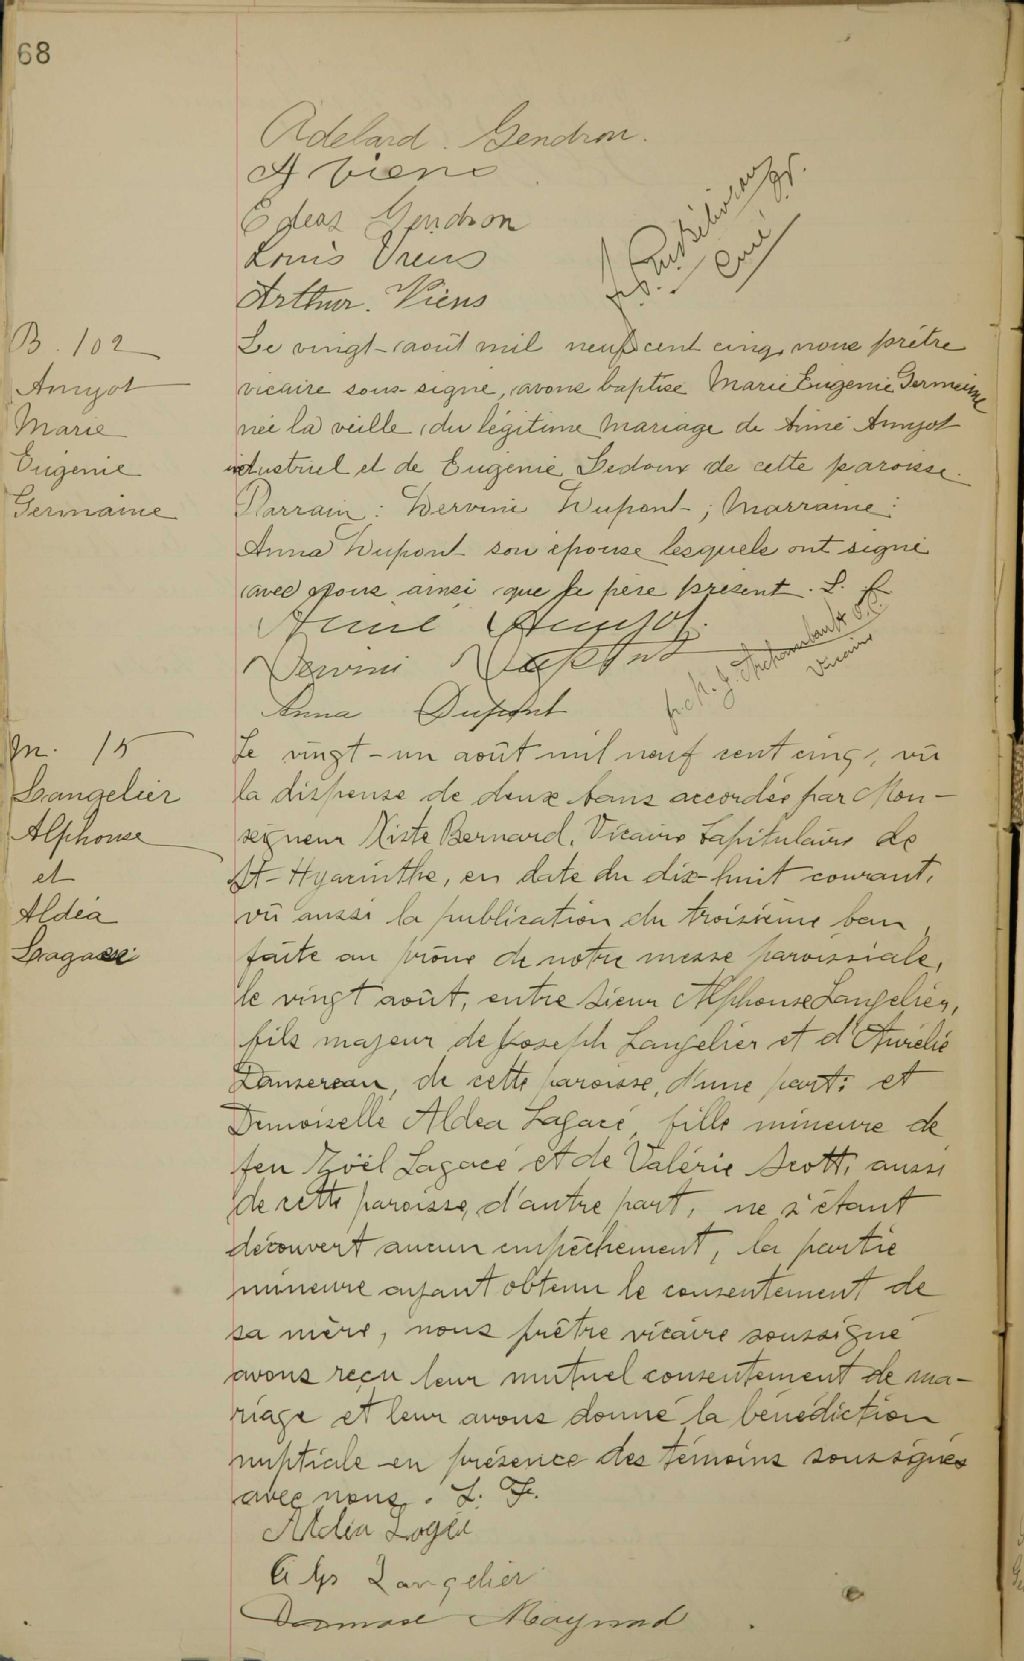 68
Adelard. Gendron.
A Viens
Louis Viens
Arthur. Viens
Curé
B. 102
Amyot
Marie
Eugénie
Germaine
Le vingt août mil neuf cent cinq, nous prêtre
vicaire sous-signé, avons baptisé Marie Eugénie Germaine
née la veille, du légitime mariage de Aimé Amyot
industriel et de Eugénie Ledoux de cette paroisse.
Parrain: Dupont; Marraine:
Anna Dupont son épouse lesquels ont signé
avec nous ainsi que le père présent. L. f.
Aimé Amyot.
Dupont
Anna Dupont
Archambault O.P.
Vicaire
M. 15
Langelier
Alphonse
et
Aldéa
Lagacé
Le vingt-un août mil neuf cent cinq, vu
la dispense de deux bans accordée par Mon-
seigneur Xiste Bernard, Vicaire Capitulaire de
St-Hyacinthe, en date du dix-huit courant,
vu aussi la publication du troisième ban,
faite au prône de notre messe paroissiale,
le vingt août, entre Sieur Alphonse Langelier,
fils majeur de Joseph Langelier et d'Aurélie
Dansereau, de cette paroisse, d'une part; et
Demoiselle Aldéa Lagacé, fille mineure de
feu Zoël Lagacé et de Valérie Scott, aussi
de cette paroisse, d'autre part, ne s'étant
découvert aucun empêchement, la partie
mineure ayant obtenu le consentement de
sa mère, nous prêtre vicaire soussigné
avons reçu leur mutuel consentement de ma-
riage et leur avons donné la bénédiction
nuptiale en présence des témoins soussignés
avec nous. L. F.
Aldéa
Langelier
Damase Maynard